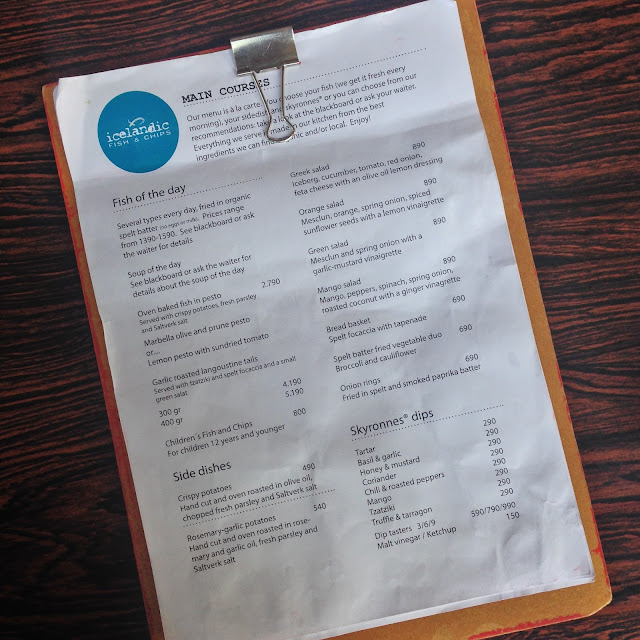 icelandic
FISH & CHIPS
MAIN COURSES
Our menu is à la carte. You choose your fish (we get it fresh every
morning), your sidedish and skyronnes® or you can choose from our
recommendations: take a look at the blackboard or ask your waiter.
Everything we serve is made in our kitchen from the best
ingredients we can find, organic and/or local. Enjoy!
Fish of the day
Several types every day, fried in organic
spelt batter (no egg or milk). Prices range
from 1390-1590. See blackboard or ask
the waiter for details
Soup of the day
See blackboard or ask the waiter for
details about the soup of the day
Oven baked fish in pesto 2.790
Served with crispy potatoes, fresh parsley
and Saltverk salt
Marbella olive and prune pesto
or....
Lemon pesto with sundried tomato
Garlic roasted langoustine tails
Served with tzatziki and spelt focaccia and a small
green salat
300 gr 4.190
400 gr 5.190
Children´s Fish and Chips 800
For children 12 years and younger
Side dishes
Crispy potatoes 490
Hand cut and oven roasted in olive oil,
chopped fresh parsley and Saltverk salt
Rosemary-garlic potatoes 540
Hand cut and oven roasted in rose-
mary and garlic oil, fresh parsley and
Saltverk salt
Greek salad 890
Iceberg, cucumber, tomato, red onion,
feta cheese with an olive oil lemon dressing
Orange salad 890
Mesclun, orange, spring onion, spiced
sunflower seeds with a lemon vinaigrette
Green salad 890
Mesclun and spring onion with a
garlic-mustard vinaigrette
Mango salad 890
Mango, peppers, spinach, spring onion,
roasted coconut with a ginger vinaigrette
Bread basket 690
Spelt focaccia with tapenade
Spelt batter fried vegetable duo 690
Broccoli and cauliflower
Onion rings 690
Fried in spelt and smoked paprika batter
Skyronnes® dips
Tartar 290
Basil & garlic 290
Honey & mustard 290
Coriander 290
Chili & roasted peppers 290
Mango 290
Tzatziki 290
Truffle & tarragon 290
Dip tasters 3/6/9 590/790/990
Malt vinegar / Ketchup 150